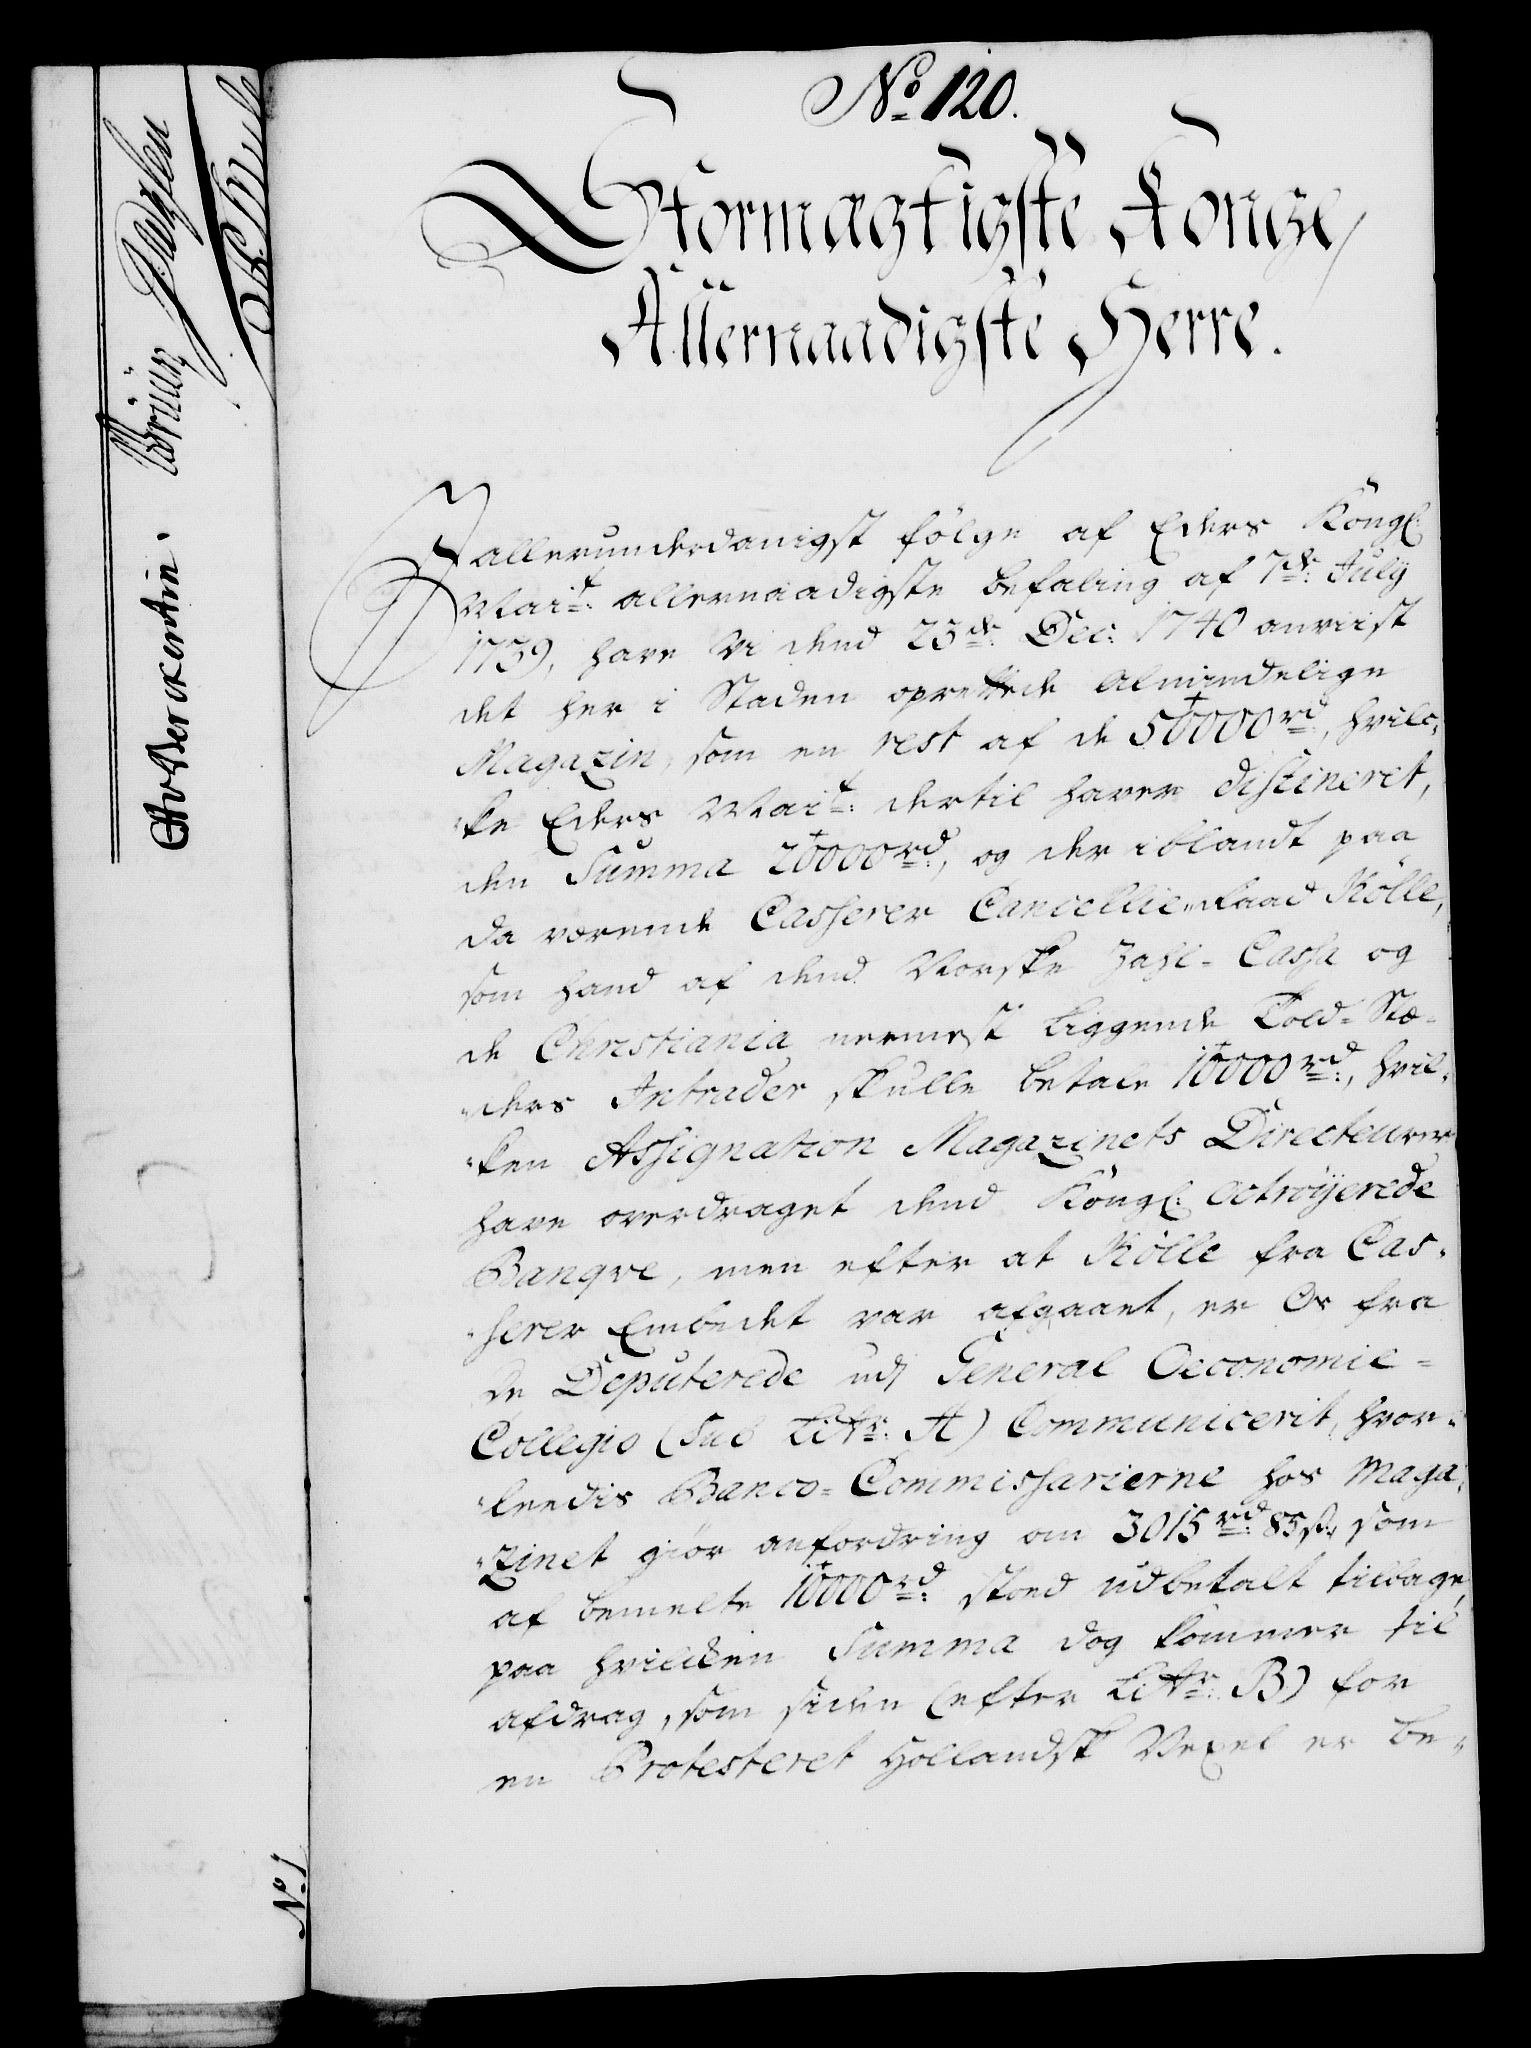 No 120.
Stormægtigste Konge,
Allernaadigste Herre.
I allerunderdanigst følge af Eders Kongl:
Mait: allernaadigste befaling af 7de: July
1739, have Vi dend 23de: Dec: 1740 anviist
det her i Staden oprettede Almindelige
Magazin, som en rest af de 50000rd, hvilc-
-ke Eders Mait: dertil haver destineret,
den Summa 20000rd:, og der iblandt paa
da værende Casserer Cancellie-Raad Kölle,
som hand af dend Norske Zahl-Cassa og
de Christiania nermest liggende Told-Stæ-
-ders Intrader skulle betale 10000rd:, hvil-
-ken Assignation Magazinets Directeurer
have overdraget dend Kongl: octroÿerede
Banqve, men efter at Kölle fra Cas-
-serer Embedet var afgaaet, er Os fra
de Deputerede udj General Oeconomie-
Collegio (Sub Littr: A) Communicerit, hvor-
-leedis Banco-Commissarierne hos Maga-
-zinet giör anfordring om 3015rd: 85s, som
af bemelte 10000rd: stoed udbetalt tilbage,
paa hvilcken Summa dog kommer til
afdrag, som siden (efter Littr: B) for
en Protesteret Hollandsk Vexel er be-
AvBerckentin.
N. 1